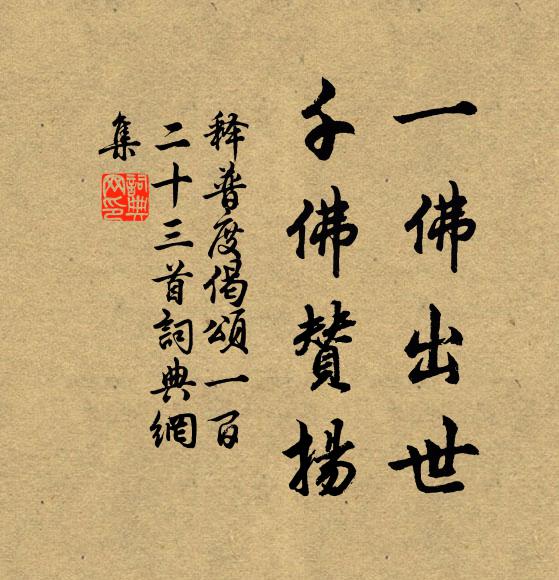 一佛出世
千佛贊揚
釋普度偈頌一百
二十三首詞典網
集
詞典網印